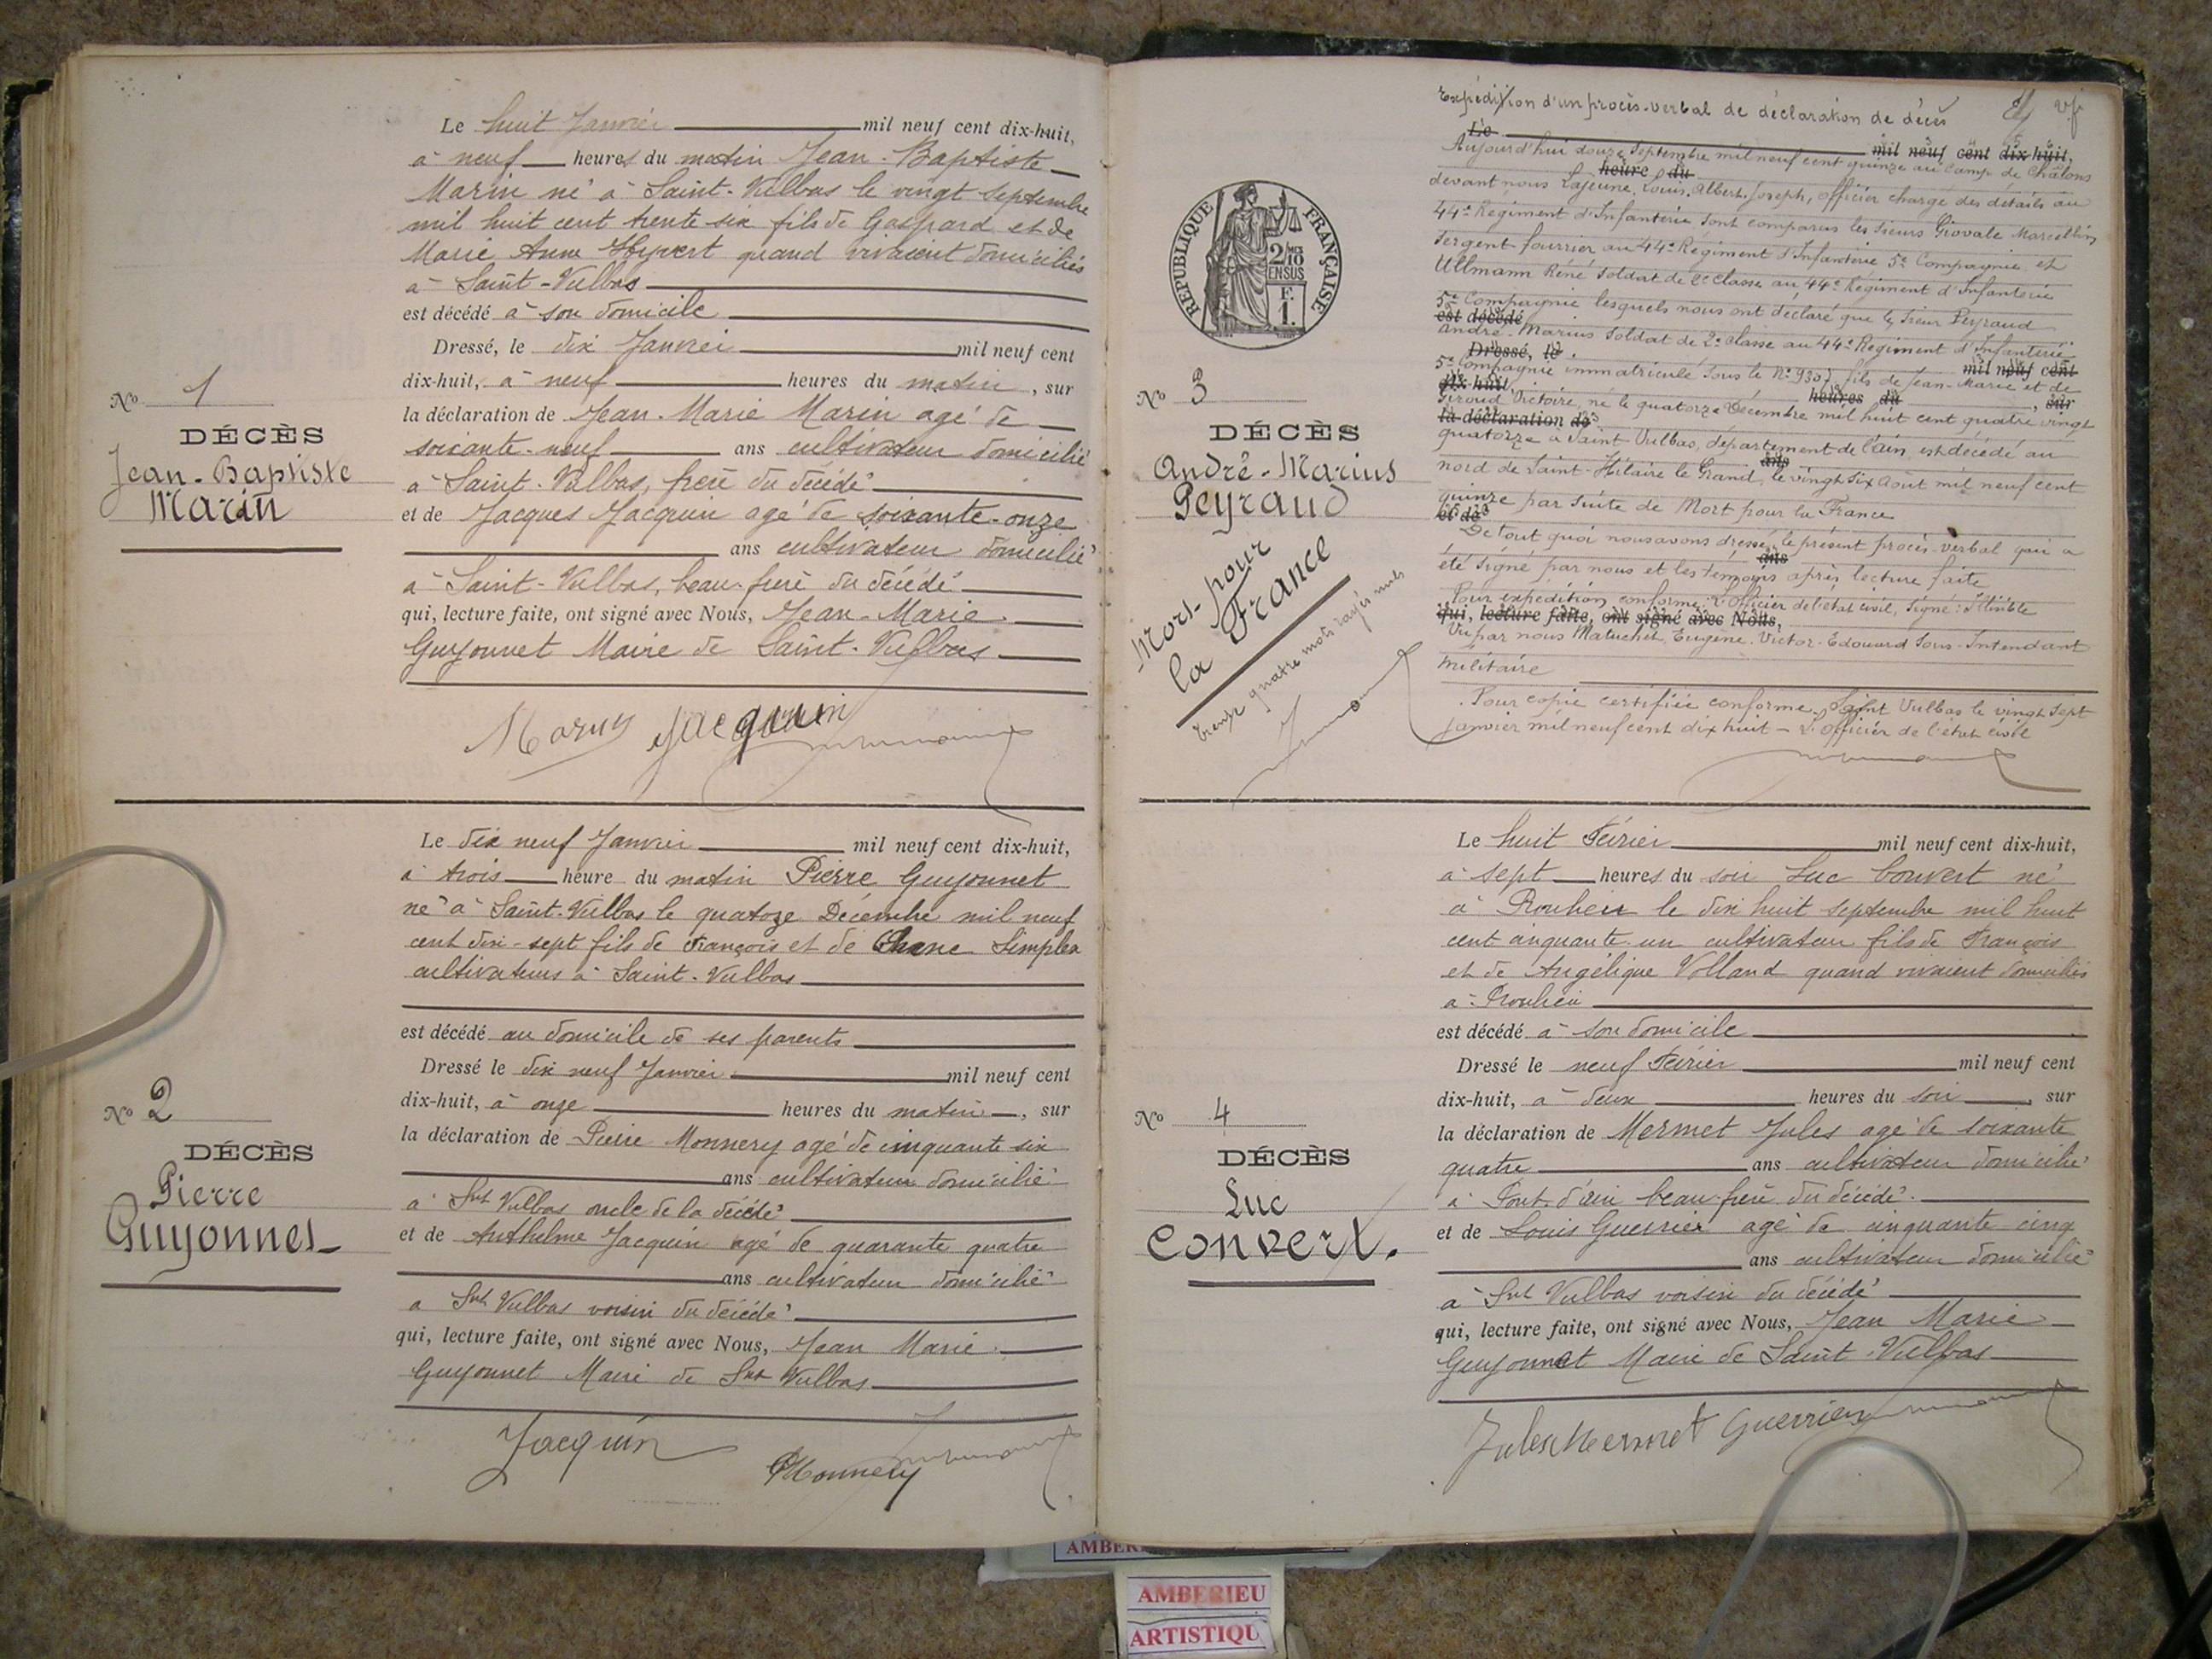 Le huit Janvier mil neuf cent dix-huit,
à neuf heures du matin Jean-Baptiste
Marin né à Saint-Vulbas le vingt Septembre
mil huit cent trente six fils de Gaspard et de
Marie Anne Hyvert quand vivaient domiciliés
à Saint-Vulbas
est décédé à son domicile
Dressé, le dix Janvier mil neuf cent
dix-huit, à neuf heures du matin, sur
la déclaration de Jean-Marie Marin agé de
soixante-neuf ans cultivateur domicilié
à Saint-Vulbas, frère du décédé
et de Jacques Jacquin agé de soixante-onze
ans cultivateur domicilié
à Saint-Vulbas, beau-frère du décédé
qui, lecture faite, ont signé avec Nous, Jean-Marie
Guyonnet Maire de Saint-Vulbas
Marin Jacquin
No 1
DÉCÈS
Jean-Baptiste
Marin
Le dix neuf Janvier mil neuf cent dix-huit,
à trois heure du matin Pierre Guyonnet
né à Saint-Vulbas le quatoze Décembre mil neuf
cent dix-sept fils de François et de Simplex
cultivateurs à Saint-Vulbas
est décédé au domicile de ses parents
Dressé le dix neuf Janvier mil neuf cent
dix-huit, à onze heures du matin, sur
la déclaration de Pierre Monnery agé de cinquante six
ans cultivateur domicilié
à Snt Vulbas oncle de la décédé
et de Anthelme Jacquin agé de quarante quatre
ans cultivateur domicilié
a Snt Vulbas voisin du décédé
qui, lecture faite, ont signé avec Nous, Jean Marie
Guyonnet Maire de Snt Vulbas
Jacquin
PMonnery
No 2
DÉCÈS
Pierre
Guyonnet
Expédition d'un procès-verbal de déclaration de décès
Le mil neuf cent dix-huit,
Aujourd'hui douze Septembre mil neuf cent quinze au Camp de Châlons
heure du
devant nous Lajeune, Louis, Albert, Joseph, officier chargé des détails au
44e Régiment d'Infanterie sont comparus les sieurs Giovale Marcellin
Sergent fourrier au 44e Régiment d'Infanterie 5e Compagnie et
Ullmann Réné Soldat de 2e Classe au 44e Régiment d'Infanterie
5e Compagnie lesquels nous ont déclaré que le sieur Peyraud
est décédé
André-Marius Soldat de 2e Classe au 44e Régiment d'Infanterie
Dressé, le mil neuf cent
5e Compagnie immatriculé sous le No 9307 fils de Jean-Marie et de
dix-huit, heures du , sur
Giroud Victoire, né le quatorze Décembre mil huit cent quatre vingt
la déclaration de
quatorze à Saint Vulbas, département de l'ain est décédé au
ans
nord de Saint-Hilaire le Grand, le vingt six Août mil neuf cent
quinze par suite de Mort pour la France
et de
De tout quoi nous avons dressé le présent procès-verbal qui a
ans
été signé par nous et les témoins après lecture faite
Pour expédition conforme. L'Officier de l'état civil, signé: Illisible
qui, lecture faite, ont signé avec Nous,
Vu par nous Matuchet Eugène-Victor-Edouard Sous-Intendant
Militaire
Pour copie certifiée conforme. Saint Vulbas le vingt sept
Janvier mil neuf cent dix huit - L'officier de l'état civil
REPUBLIQUE FRANÇAISE
2/10
EN SUS
F.
1.
No 3
DÉCÈS
André-Marius
Peyraud
Mort pour
la France
trente quatre mots rayés nuls
Le huit Février mil neuf cent dix-huit,
à sept heures du soir Luc Convert né
à le dix huit Septembre mil huit
cent cinquante un cultivateur fils de François
et de Angélique Volland quand vivaient domiciliés
à
est décédé à son domicile
Dressé le neuf Février mil neuf cent
dix-huit, à deux heures du soir, sur
la déclaration de Mermet Jules agé de soixante
quatre ans cultivateur domicilié
à Pont-d'ain beau-frère du décédé
et de Louis Guerrier agé de cinquante cinq
ans cultivateur domicilié
à Snt Vulbas voisin du décédé
qui, lecture faite, ont signé avec Nous, Jean Marie
Guyonnet Maire de Saint-Vulbas
Jules Mermet Guerrier
No 4
DÉCÈS
Luc
Convert.
AMBERIEU
ARTISTIQU